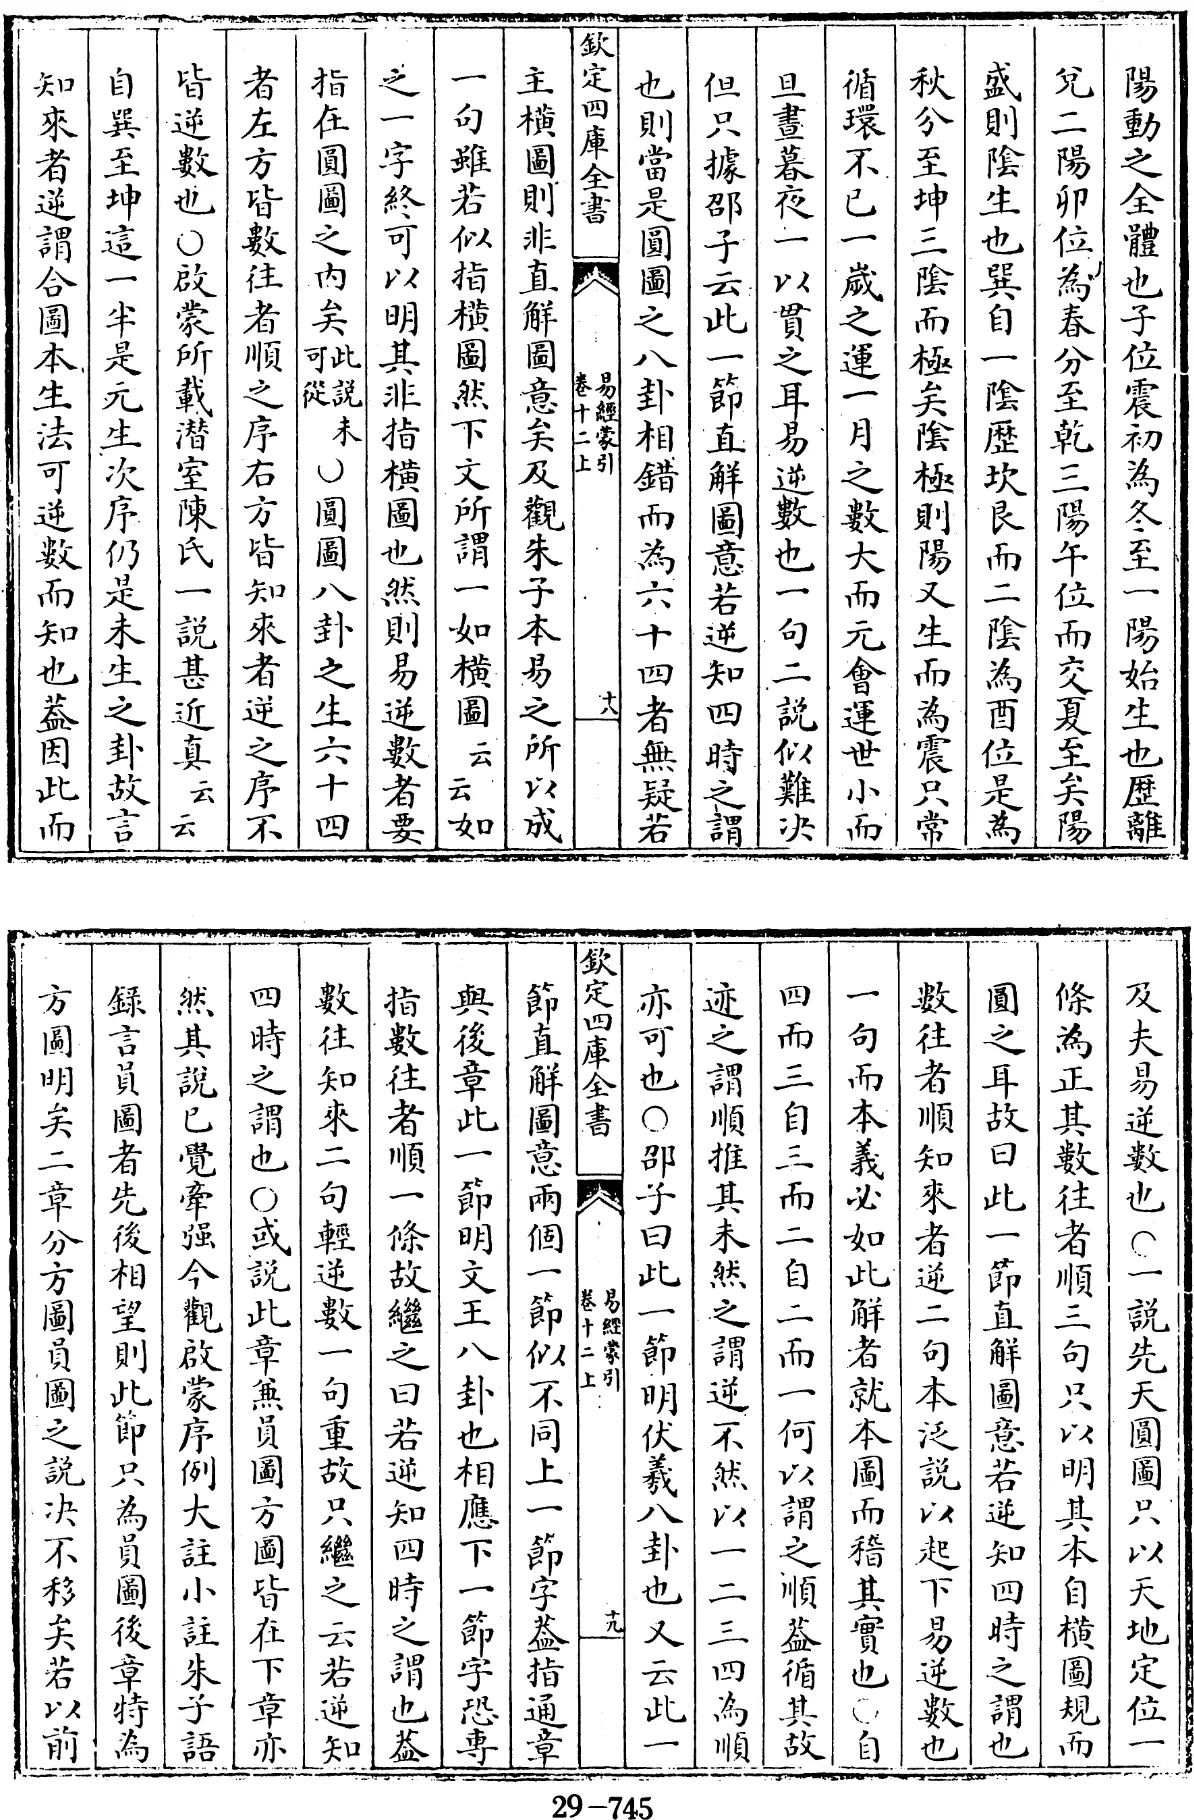 陽動之全體也子位震初為冬至一陽始生也歴離
兌二陽卯位為春分至乾三陽午位而交夏至矣陽
盛則陰生也巽自一陰歴坎艮而二陰為酉位是為
秋分至坤三陰而極矣陰極則陽又生而為震只常
循環不已一歲之運一月之數大而元會運世小而
旦晝暮夜一以貫之耳易逆數也一句二説似難決
但只據邵子云此一節直解圖意若逆知四時之謂
也則當是圓圖之八卦相錯而為六十四者無疑若
欽定四庫全書
易經蒙引
卷十二上
十八
主橫圖則非直解圖意矣及觀朱子本易之所以成
一句雖若似指橫圖然下文所謂一如橫圖云云如
之一字終可以明其非指橫圖也然則易逆數者要
指在圓圖之内矣此説未可從○圓圖八卦之生六十四
者左方皆數往者順之序右方皆知來者逆之序不
皆逆數也○啟蒙所載潛室陳氏一説甚近真云云
自巽至坤這一半是元生次序仍是未生之卦故言
知來者逆謂合圖本生法可逆數而知也葢因此而
及夫易逆數也○一説先天圓圖只以天地定位一
條為正其數往者順三句只以明其本自橫圖規而
圓之耳故曰此一節直解圖意若逆知四時之謂也
數往者順知來者逆二句本泛説以起下易逆數也
一句而本義必如此解者就本圖而稽其實也○自
四而三自三而二自二而一何以謂之順葢循其故
迹之謂順推其未然之謂逆不然以一二三四為順
亦可也○邵子曰此一節明伏羲八卦也又云此一
欽定四庫全書
易經蒙引
卷十二上
十九
節直解圖意兩個一節似不同上一節字葢指通章
與後章此一節明文王八卦也相應下一節字恐專
指數往者順一條故繼之曰若逆知四時之謂也葢
數往知來二句輕逆數一句重故只繼之云若逆知
四時之謂也○或説此章兼員圖方圖皆在下章亦
然其説已覺牽强今觀啟蒙序例大註小註朱子語
錄言員圖者先後相望則此節只為員圖後章特為
方圖明矣二章分方圖員圖之説决不移矣若以前
29-745